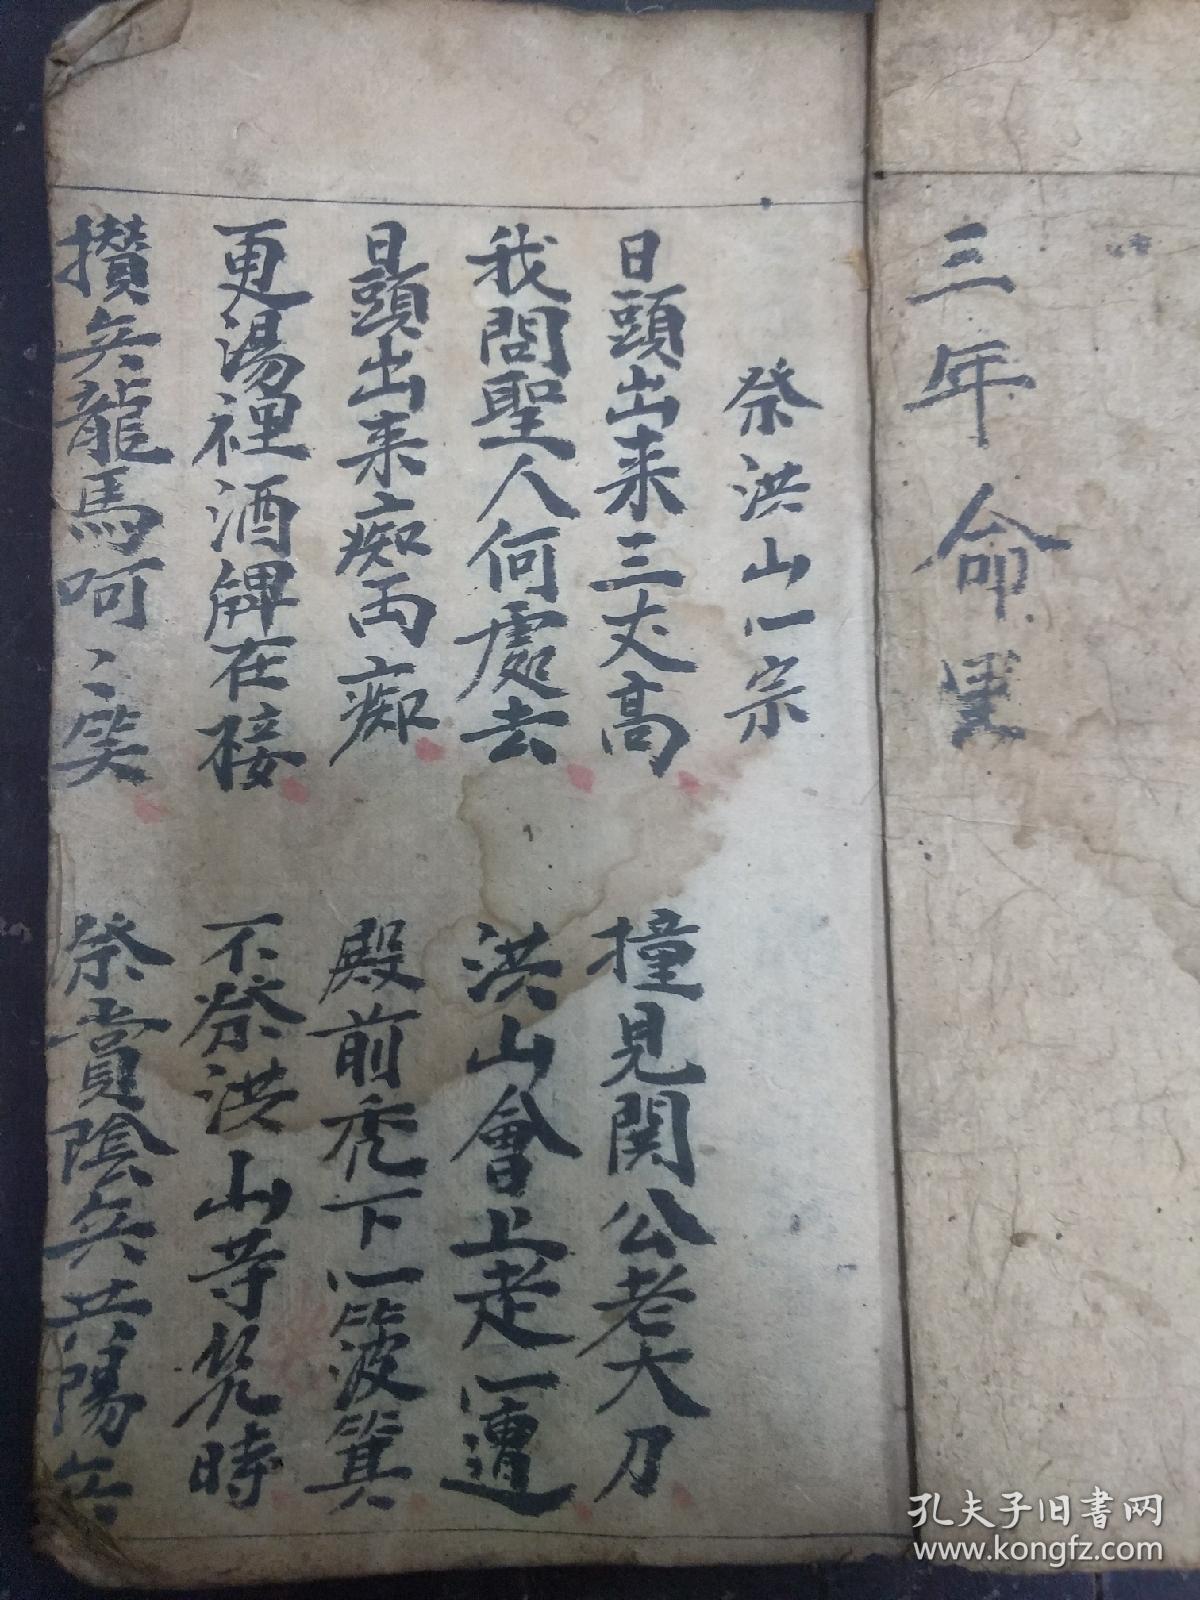 三年命
祭洪山一宗
日頭出来三丈高 撞見関公老大刀
我問聖人何處去 洪山會上走一遭
日頭出来痴両痴 殿前禿下一簸箕
更湯裡酒觧在接 不祭洪山等几時
攢兵龍馬呵〻笑 祭賞陰兵共陽兵
孔夫子旧书网
www.kongfz.com